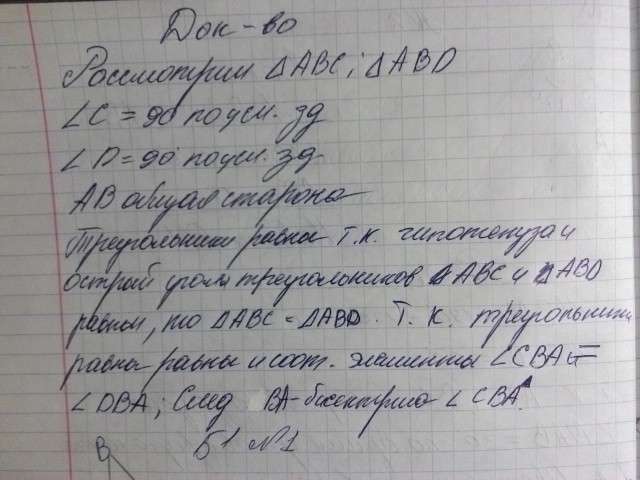 Док-во
Рассмотрим △ABC; △ABD
∠C = 90° по усл. зд
∠D = 90° по усл. зд
AB общая сторона
Треугольники равны т.к. гипотенуза и
острый угол треугольников △ABC и △ABD
равны, то △ABC = △ABD. Т. к. треугольники
равны равны и соот. элементы ∠CBA =
∠DBA; След BA-биссектриса ∠CBA.
B Б1 №1